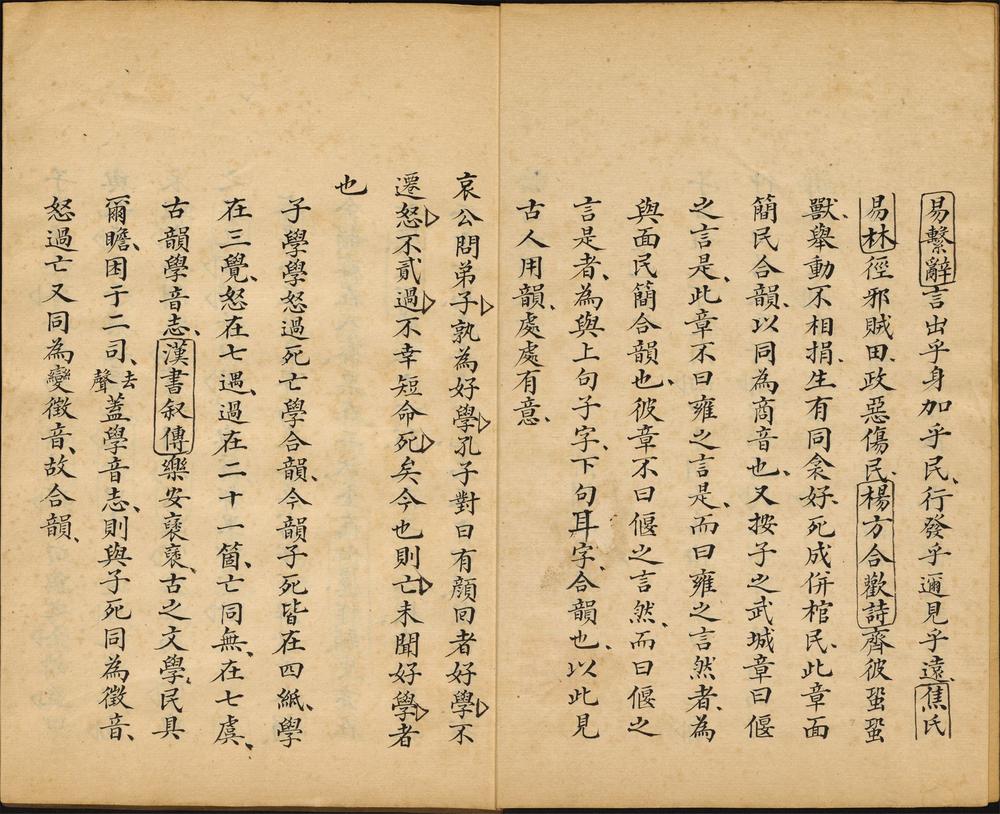 易繫辭言出乎身加乎民行發乎邇見乎遠焦氏
易林徑邪賊田政惡傷民楊方合歡詩齊彼蛩蛩
獸舉動不相捐生有同衾好死成併棺民此章面
簡民合韻以同為商音也又按子之武城章曰偃
之言是此章不曰雍之言是而曰雍之言然者為
與面民簡合韻也彼章不曰偃之言然而曰偃之
言是者為與上句子字下句耳字合韻也以此見
古人用韻處處有意
哀公問弟子孰為好學孔子對曰有顏回者好學不
遷怒不貳過不幸短命死矣今也則亡未聞好學者
也
子學學怒過死亡學合韻今韻子死皆在四紙學
在三覺怒在七遇過在二十一箇亡同無在七虞
古韻學音志漢書叙傳樂安裒裒古之文學民具
爾瞻困于二司去聲蓋學音志則與子死同為徵音
怒過亡又同為變徵音故合韻